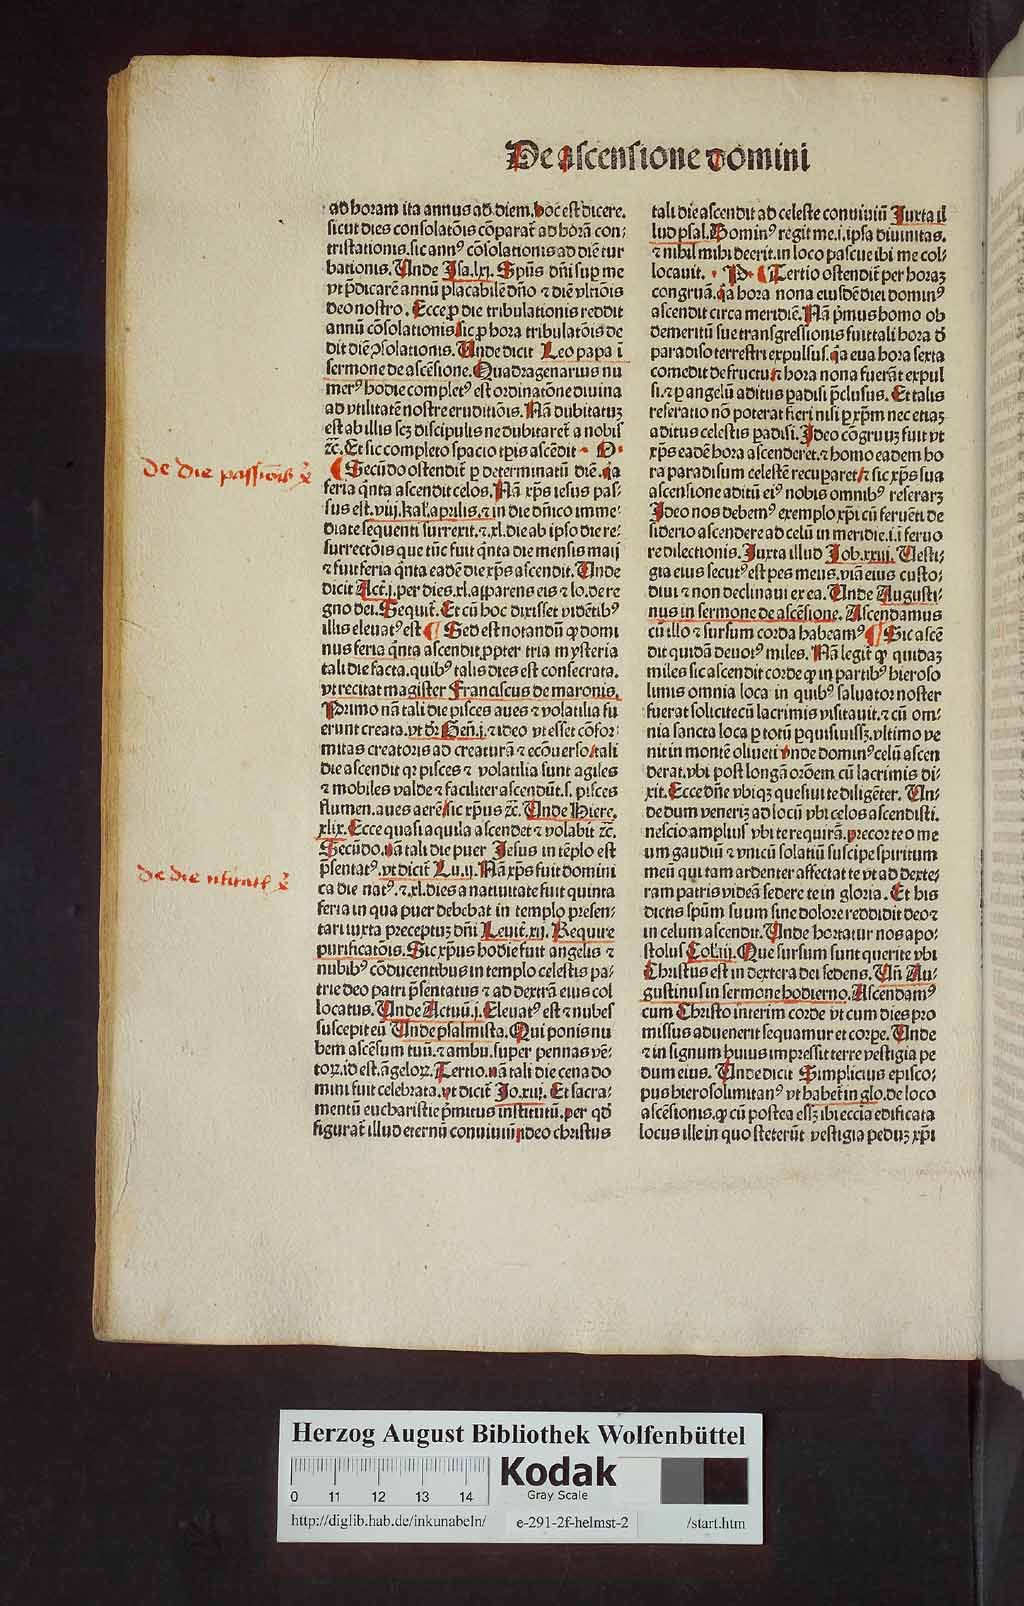 De ascensione domini
ad horam ita annus ad diem. hoc est dicere.
sicut dies consolatōis cōparat̄ ad horā con⸗
tristationis. sic annꝰ cōsolationis ad diē tur
bationis. Unde Isa. lxi. Spūs dn̄i suꝑ me
vt p̄dicarē annū placabilē dn̄o ⁊ diē vltiōis
deo nostro. Ecce ꝓ die tribulationis reddit
annū cōsolationis sic ꝓ hora tribulatōis de
dit diē ꝯsolationis. Unde dicit Leo papa ī
sermone de ascēsione. Quadragenarius nu
merꝰ hodie completꝰ est ordinatōne diuina
ad vtilitatē nostre eruditiōis. Nā dubitatuꝫ
est ab illis scꝫ discipulis ne dubitaret̄ a nobis
⁊c̄. Et sic completo spacio tꝑis ascēdit
de die passiōis xͥ
¶ Secūdo ostendit̄ ꝑ determinatū diē. q̄a
feria q̄nta ascendit celos. Nā xp̄s iesus pas⸗
sus est. viij. kal̄. aprilis. ⁊ in die dn̄ico imme⸗
diate sequenti surrexit. ⁊. xl. die ab ipso die re⸗
surrectōis que tūc fuit q̄nta die mensis maij
⁊ fuit feria q̄nta eadē die xp̄s ascendit. Unde
dicit Act̄. j. per dies. xl. apparens eis ⁊ lo. de re
gno dei. Sequit̄. Et cū hoc dixisset vidētibꝰ
illis eleuatꝰ est ¶ Sed est notandū ꝙ domi
nus feria q̄nta ascendit ꝓpter tria mysteria
tali die facta. quibꝰ talis dies est consecrata.
vt recitat magister Franciscus de maronis.
Primo nā tali die pisces aues ⁊ volatilia fu
erunt creata. vt dr̄ Gen̄. j. ⁊ ideo vt esset cōfor⸗
mitas creatoris ad creaturā ⁊ ecōuerso tali
die ascendit qꝛ pisces ⁊ volatilia sunt agiles
⁊ mobiles valde ⁊ faciliter ascendūt. s. pisces
flumen. aues aerē sic xp̄us ⁊c̄. Unde Hiere.
xlix. Ecce quasi aquila ascendet ⁊ volabit ⁊c̄.
Secūdo. nā tali die puer Jesus in tēplo est
de die natitat xͥ
p̄sentatꝰ. vt dicit̄ Lu. ij. Nā xp̄s fuit domini
ca die natꝰ. ⁊. xl. dies a natiuitate fuit quinta
feria in qua puer debebat in templo presen⸗
tari iuxta preceptuꝫ dn̄i Leuit̄. xij. Require
purificatōis. Sic xp̄us hodie fuit angelis ⁊
nubibꝰ cōducentibus in templo celestis pa⸗
trie deo patri p̄sentatus ⁊ ad dextrā eius col
locatus. Unde Actuū. j. Eleuatꝰ est ⁊ nubes
suscepit eū Unde psalmista. Qui ponis nu
bem ascēsum tuū. ⁊ ambu. super pennas vē⸗
toꝝ. id est. āgeloꝝ. Tertio. nā tali die cena do
mini fuit celebrata. vt dicit̄ Jo. xiij. Et sacra⸗
mentū eucharistie p̄mitus institutū. per qd̄
figurat̄ illud eternū conuiuiū ideo christus
tali die ascendit ad celeste conuiuiū Juxta il
lud psal. Dominꝰ regit me. i. ipsa diuinitas.
⁊ nihil mihi deerit. in loco pascue ibi me col⸗
locauit. ¶ Tertio ostendit̄ per horaꝫ
congruā. q̄a hora nona eiusdē diei dominꝰ
ascendit circa meridiē. Nā p̄mus homo ob
demeritū sue transgressionis fuit tali hora d̄
paradiso terrestri expulsus. q̄a eua hora sexta
comedit de fructu ⁊ hora nona fuerāt expul
si. ⁊ ꝑ angelū aditus ꝑadisi p̄clusus. Et talis
reseratio nō poterat fieri nisi ꝑ xp̄m nec etiaꝫ
aditus celestis ꝑadisi. Ideo cōgruuꝫ fuit vt
xp̄s eadē hora ascenderet. ⁊ homo eadem ho
ra paradisum celestē recuparet ⁊ sic xp̄s sua
ascensione aditū eiꝰ nobis omnibꝰ reserarꝫ
Ideo nos debemꝰ exemplo xp̄i cū feruēti de
siderio ascendere ad celū in meridie. i. ī feruo
re dilectionis. Juxta illud Job. xxiij. Uesti⸗
gia eius secutꝰ est pes meus. viā eius custo⸗
diui ⁊ non declinaui ex ea. Unde Augusti⸗
nus in sermone de ascēsione. Ascendamus
cū illo ⁊ sursum corda habeamꝰ ¶ Sic ascē
dit quidā deuotꝰ miles. Nā legit̄ ꝙ quidaꝫ
miles sic ascendit corde ꝙ in partibꝰ hieroso
limis omnia loca in quibꝰ saluator noster
fuerat solicite cū lacrimis visitauit. ⁊ cū om⸗
nia sancta loca ꝑ totū ꝑquisiuissꝫ. vltimo ve
nit in montē oliueti vnde dominꝰ celū ascen
derat. vbi post longā orōem cū lacrimis di⸗
xit. Ecce dn̄e vbiqꝫ quesiui te diligēter. Un⸗
de dum veneriꝫ ad locū vbi celos ascendisti.
nescio amplius vbi te requirā. precor te o me
um gaudiū ⁊ vnicū solatiū suscipe spiritum
meū qui tam ardenter affectat te vt ad dexte⸗
ram patris videā sedere te in gloria. Et his
dictis spūm suum sine dolore reddidit deo ⁊
in celum ascendit. Unde hortatur nos apo⸗
stolus Col̄. iij. Que sursum sunt querite vbi
Christus est in dextera dei sedens. Un̄ Au⸗
gustinus in sermone hodierno. Ascendamꝰ
cum Christo interim corde vt cum dies pro
missus aduenerit sequamur et corꝑe. Unde
⁊ in signum huius impressit terre vestigia pe
dum eius. Unde dicit Simplicius episco⸗
pus hierosolimitanꝰ vt habet̄ in glo. de loco
ascēsionis. ꝙ cū postea essꝫ ibi eccīa edificata
locus ille in quo steterūt vestigia peduꝫ xp̄i
Herzog August Bibliothek Wolfenbüttel
Kodak
Gray Scale
0 11 12 13 14
http://diglib.hab.de/inkunabeln/ e-291-2f-helmst-2 /start.htm